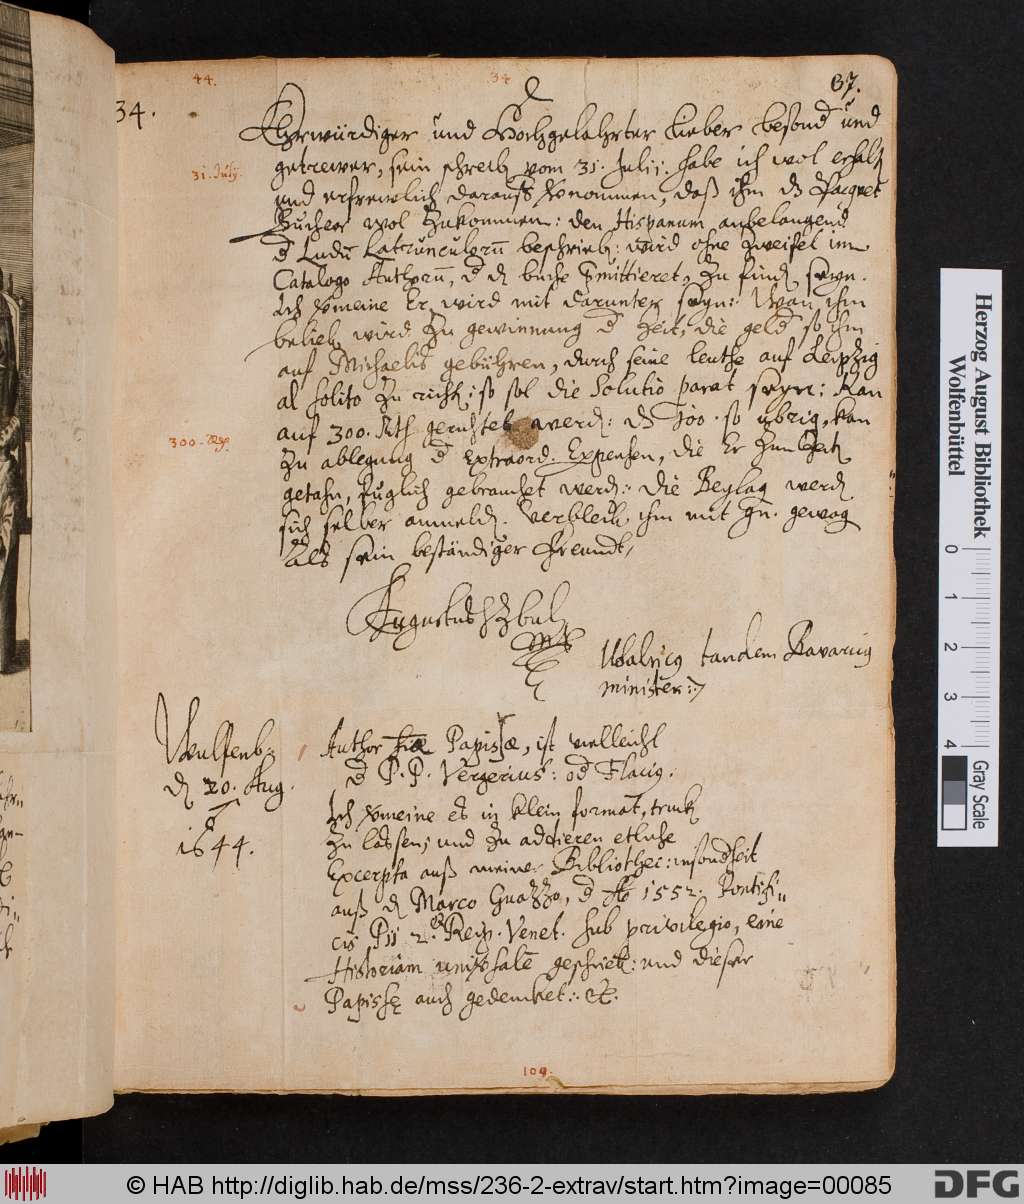 44.
34
37.
34.
Ehrwürdiger und Hochgelahrter Lieber besond und
31. July.
getrewer, sein schreib vom 31. Julii: habe ich wol erhalt
und erfrewlich darauß vernommen, daß ihm dz Pacquet
Bücher wol zukommen: den Hispanum anbelangend
d Ludū Latrunculorū beschrieb: wird ohne zweifel im
Catalogo Authorū, zu find seyn.
Ich vermeine Er wird mit darunter seyn: Wan ihm
belieb wird zu gewinnung d Zeit, die geld so ihm
auf Michaelis gebühren, durch seine leuthe auf Leipzig
al solito zu richt: so sol die Solutio parat seyn: Kan
300. Rth.
auf 300. Rth. gerichtet werd: dz so übrig, kan
zu ablegung d Extraord. Expensen, die Er
getahn, füglich gebrauchet werd: Die Beylag werd
sich selber anmeld. Verbleib ihm mit gn. gewog
Als sein beständiger Freundt,
Augustus HZBuL
mp
Ubalricg tandem Bavaricg
minister:
Wulfenb:
d 20. Aug.
1644.
Author hiæ Papissæ, ist vielleicht
d P. P. Vergerius: od Flacig.
Ich vermeine es in klein format, truck
zu lassen; und zu addieren etliche
Excerpta auß meiner Bibliothec: insondheit
auß d Marco Guazzo, d Aō 1552. Pontifi=
cis Pii 2. Reip. Venet. sub privilegio, eine
Historiam universalē geschrieb: und dieser
Papissę auch gedencket: &.
109.
Herzog August Bibliothek
Wolfenbüttel
0 1 2 3 4
Gray Scale
© HAB http://diglib.hab.de/mss/236-2-extrav/start.htm?image=00085
DFG